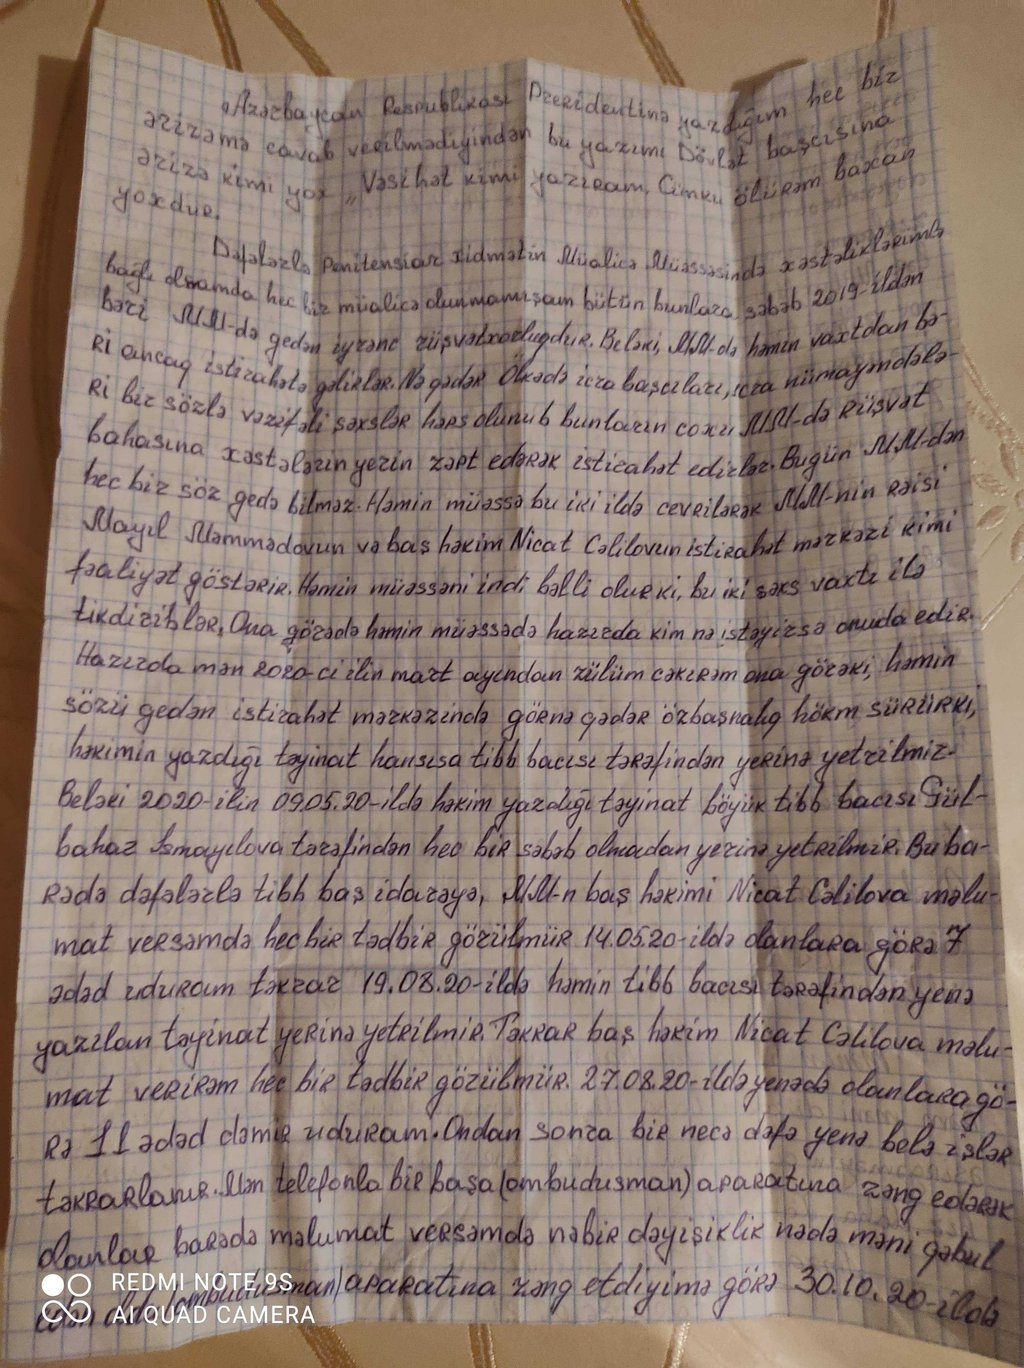 Azərbaycan Respublikası Prezidentinə yazdığım hec bir
ərizəmə cavab verilmədiyindən bu yazımı Dövlət başcısına
ərizə kimi yox „Vəsihət kimi yazıram, Cünku ölürəm baxan
yoxdur.
Dəfələrlə Penitensiar xidmətin Müalicə Müəssəsində xəstəliklərimlə
bağlı olsamda hec bir müalicə olunmamışam bütün bunlara səbəb 2019-ildən
bəri MM-də gedən iyrənc rüşvətxorluqdur. Beləki, MM-də həmin vaxtdan bə-
ri ancaq istirahətə gəlirlər. Nə qədər Ölkədə icra başcıları, icra nümayəndələ-
ri bir sözlə vəzifəli şəxslər həps olunub bunların coxu MM-də rüşvət
bahasına xəstələrin yerin zəpt edərək istirahət edirlər. Bugün MM-dən
hec bir söz gedə bilməz. Həmin müəssə bu iki ildə cevrilərək MM-nin rəisi
Mayıl Məmmədovun və baş həkim Nicat Cəlilovun istirahət mərkəzi kimi
fəaliyət göstərir. Həmin müəssəni indi bəlli olur ki, bu iki şəxs vaxtı ilə
tikdiriblər, Ona görədə həmin müəssədə hazırda kim nə istəyirsə onuda edir.
Hazırda mən 2020-ci ilin mart ayından zülüm cəkirəm ona görəki, həmin
sözü gedən istirahət mərkəzində görnə qədər özbaşnalıq hökm sürürki,
həkimin yazdığı təyinat hansısa tibb bacısı tərəfindən yerinə yetrilmir.
Beləki 2020-ilin 09.05.20-ildə həkim yazdığı təyinat böyük tibb bacısı Gül-
bahar İsmayılova tərəfindən hec bir səbəb olmadan yerinə yetrilmir. Bu ba-
rədə dəfələrlə tibb baş idarəyə, MM-n baş həkimi Nicat Cəlilova məlu-
mat versəmdə hec bir tədbir görülmür 14.05.20-ildə olanlara görə 7
ədəd uduram təkrar 19.08.20-ildə həmin tibb bacısı tərəfindən yenə
yazılan təyinat yerinə yetrilmir. Təkrar baş həkim Nicat Cəlilova məlu-
mat verirəm hec bir tədbir görülmür. 27.08.20-ildə yenədə olanlara gö-
rə 11 ədəd dəmir uduram. Ondan sonra bir necə dəfə yenə belə işlər
təkrarlanır. Mən telefonla bir başa (ombudusman) aparatına zəng edərək
olanlar barədə məlumat versəmdə nəbir dəyişiklik nədə məni qəbul
edən olub (ombudusman) aparatına zəng etdiyimə görə 30.10.20-ildə
REDMI NOTE 9S
AI QUAD CAMERA